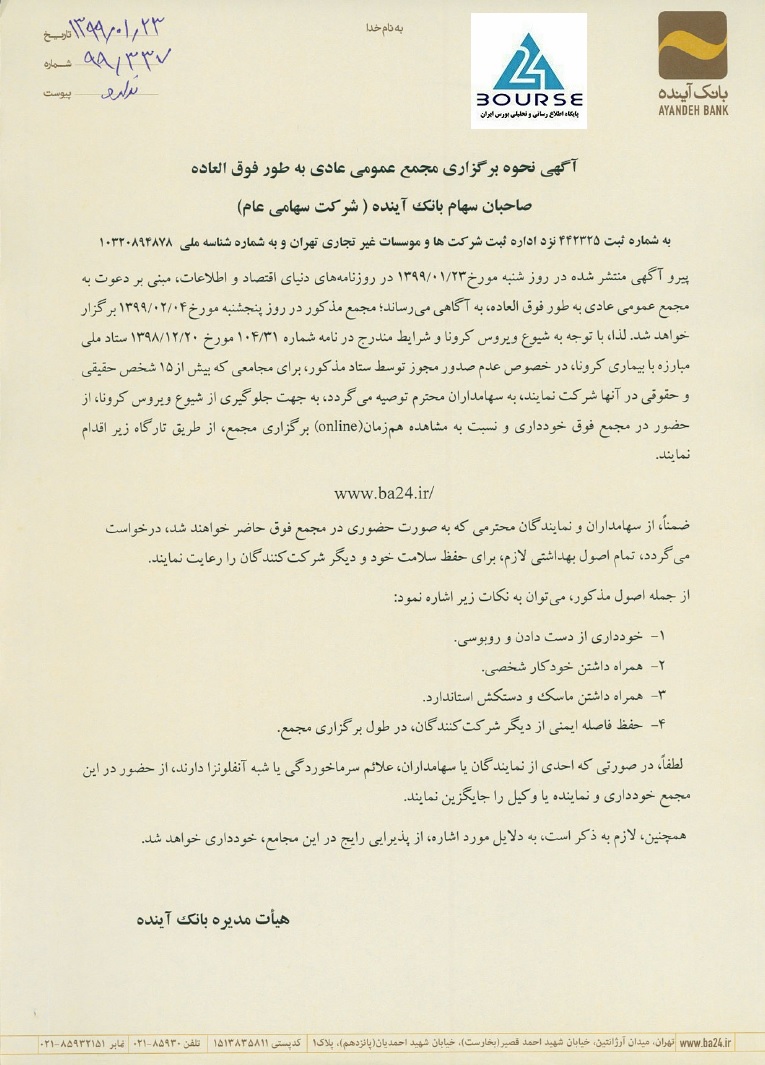 به نام خدا
تاریخ ۱۳۹۹/۰۱/۲۳
شماره ۹۹/۳۳۷
پیوست ندارد
24
BOURSE
پایگاه اطلاع رسانی و تحلیلی بورس ایران
بانک آینده
AYANDEH BANK
آگهی نحوه برگزاری مجمع عمومی عادی به طور فوق العاده
صاحبان سهام بانک آینده ( شرکت سهامی عام)
به شماره ثبت ۴۴۲۳۲۵ نزد اداره ثبت شرکت ها و موسسات غیر تجاری تهران و به شماره شناسه ملی ۱۰۳۲۰۸۹۴۸۷۸
پیرو آگهی منتشر شده در روز شنبه مورخ۱۳۹۹/۰۱/۲۳ در روزنامه‌های دنیای اقتصاد و اطلاعات، مبنی بر دعوت به
مجمع عمومی عادی به طور فوق العاده، به آگاهی می‌رساند؛ مجمع مذکور در روز پنجشنبه مورخ۱۳۹۹/۰۲/۰۴ برگزار
خواهد شد. لذا، با توجه به شیوع ویروس کرونا و شرایط مندرج در نامه شماره ۱۰۴/۳۱ مورخ ۱۳۹۸/۱۲/۲۰ ستاد ملی
مبارزه با بیماری کرونا، در خصوص عدم صدور مجوز توسط ستاد مذکور، برای مجامعی که بیش از۱۵ شخص حقیقی
و حقوقی در آنها شرکت نمایند، به سهامداران محترم توصیه می‌گردد، به جهت جلوگیری از شیوع ویروس کرونا، از
حضور در مجمع فوق خودداری و نسبت به مشاهده هم‌زمان(online) برگزاری مجمع، از طریق تارگاه زیر اقدام
نمایند.
www.ba24.ir/
ضمناً، از سهامداران و نمایندگان محترمی که به صورت حضوری در مجمع فوق حاضر خواهند شد، درخواست
می‌گردد، تمام اصول بهداشتی لازم، برای حفظ سلامت خود و دیگر شرکت‌کنندگان را رعایت نمایند.
از جمله اصول مذکور، می‌توان به نکات زیر اشاره نمود:
۱- خودداری از دست دادن و روبوسی.
۲- همراه داشتن خودکار شخصی.
۳- همراه داشتن ماسک و دستکش استاندارد.
۴- حفظ فاصله ایمنی از دیگر شرکت‌کنندگان، در طول برگزاری مجمع.
لطفاً، در صورتی که احدی از نمایندگان یا سهامداران، علائم سرماخوردگی یا شبه آنفلونزا دارند، از حضور در این
مجمع خودداری و نماینده یا وکیل را جایگزین نمایند.
همچنین، لازم به ذکر است، به دلایل مورد اشاره، از پذیرایی رایج در این مجامع، خودداری خواهد شد.
هیأت مدیره بانک آینده
www.ba24.ir تهران، میدان آرژانتین، خیابان شهید احمد قصیر(بخارست)، خیابان شهید احمدیان(پانزدهم)، پلاک۱ | کدپستی ۱۵۱۳۸۳۵۸۱۱ | تلفن ۸۵۹۳۰-۰۲۱ | نمابر ۸۵۹۳۲۱۵۱-۰۲۱